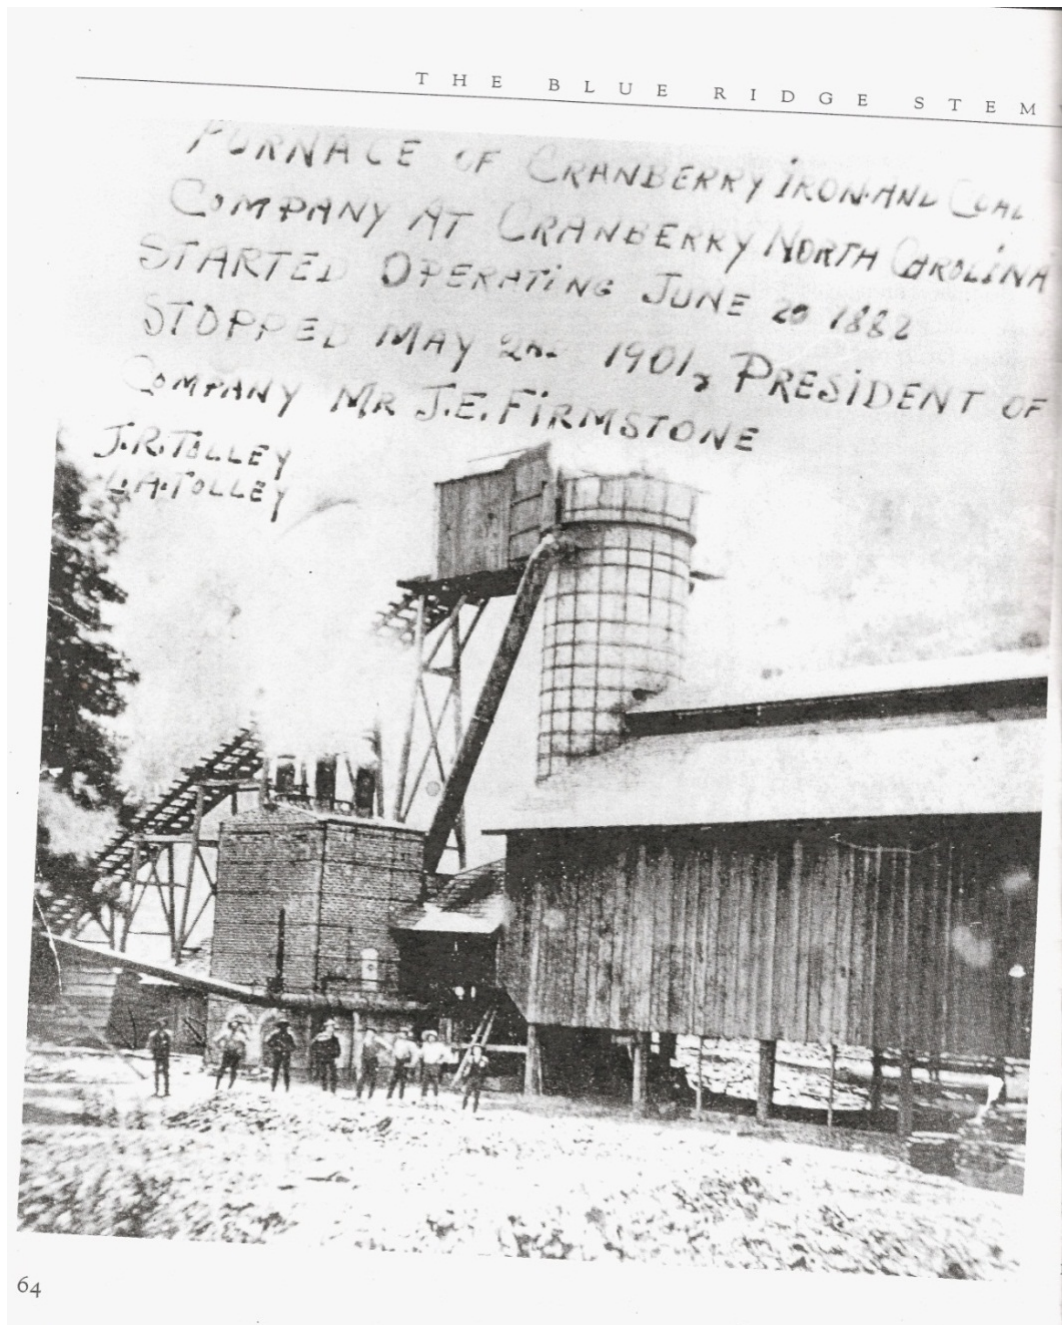 THE BLUE RIDGE STEM
FURNACE OF CRANBERRY IRON AND COAL
COMPANY AT CRANBERRY NORTH CAROLINA
STARTED OPERATING JUNE 20 1882
STOPPED MAY 2ND 1901, PRESIDENT OF
COMPANY MR J.E. FIRMSTONE
J.R. TOLLEY
A. TOLLEY
64